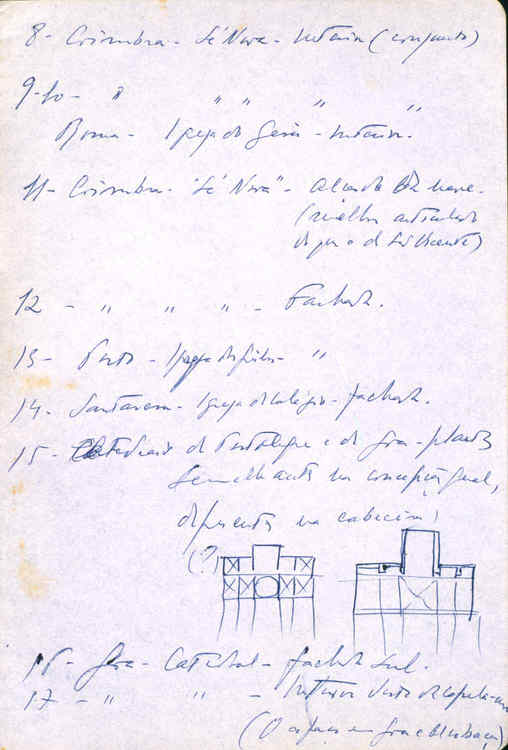 8 - Coimbra - Sé Nova - Interior (conjunto)
9-10 - " " " " "
Roma - Igreja do Gesù - Interior.
11 - Coimbra - "Sé Nova" - Alçado da nave.
(melhor articulado
do que o de S. Vicente)
12 - " " " - Fachada.
13 - Porto - Igreja dos Grilos - "
14 - Santarém - Igreja do Colégio - fachada.
15 - Catedrais de Portalegre e de Goa - plantas
semelhantes na concepção geral,
diferentes na cabeceira
(?)
16 - Goa - Catedral - fachada sul.
17 - " " - Interior visto da capela-mor
(O espaço em Goa e